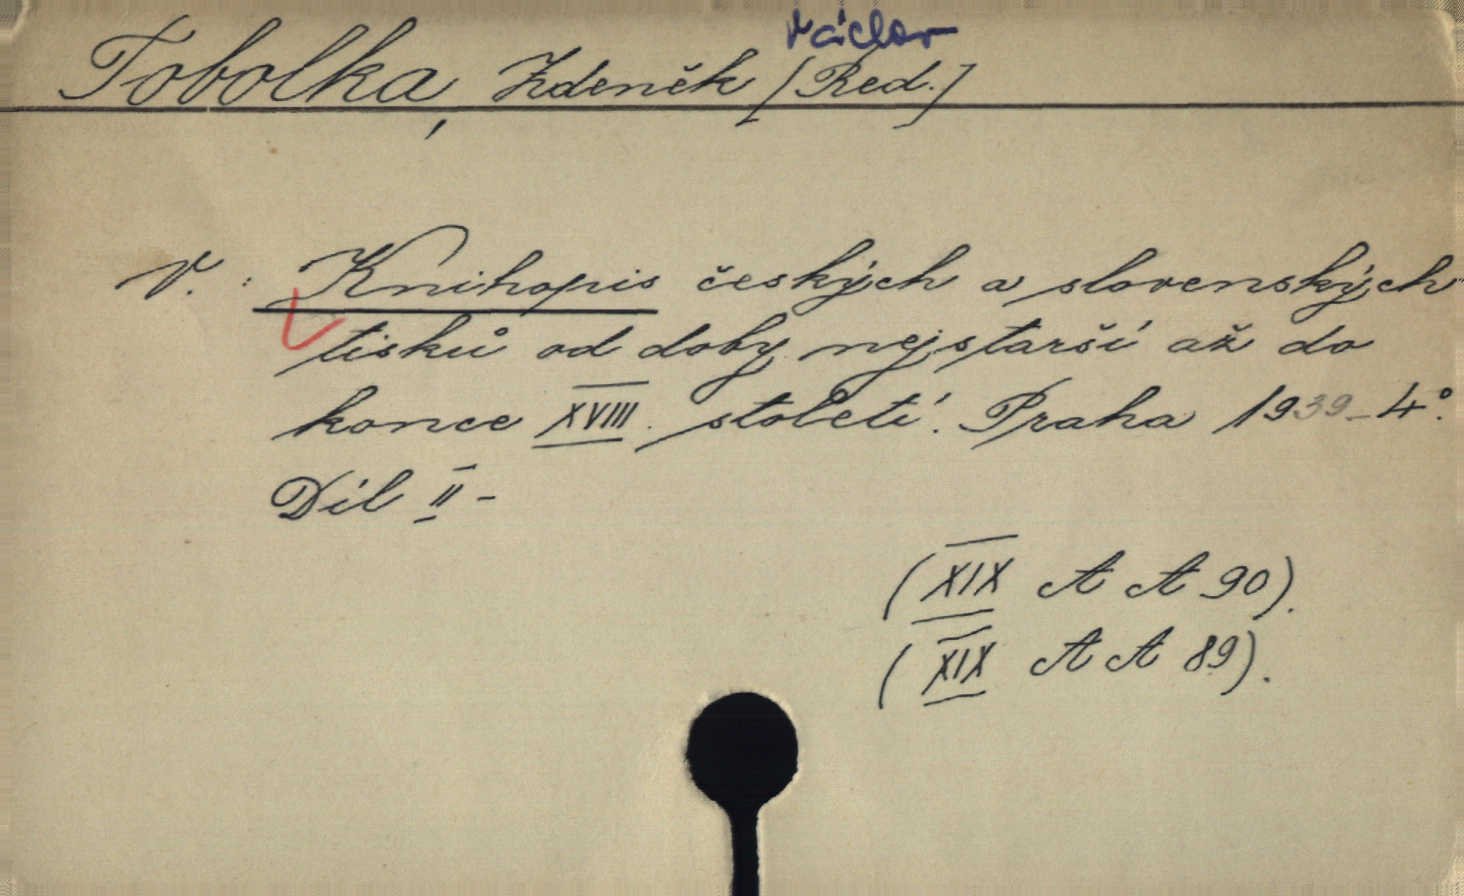 Václav
Tobolka, Zdeněk [Red.]
V.: Knihopis českých a slovenských
tisků od doby nejstarší až do
konce XVIII. století. Praha 1939-4°.
Díl II-
(XIX A A 90).
(XIX A A 89).